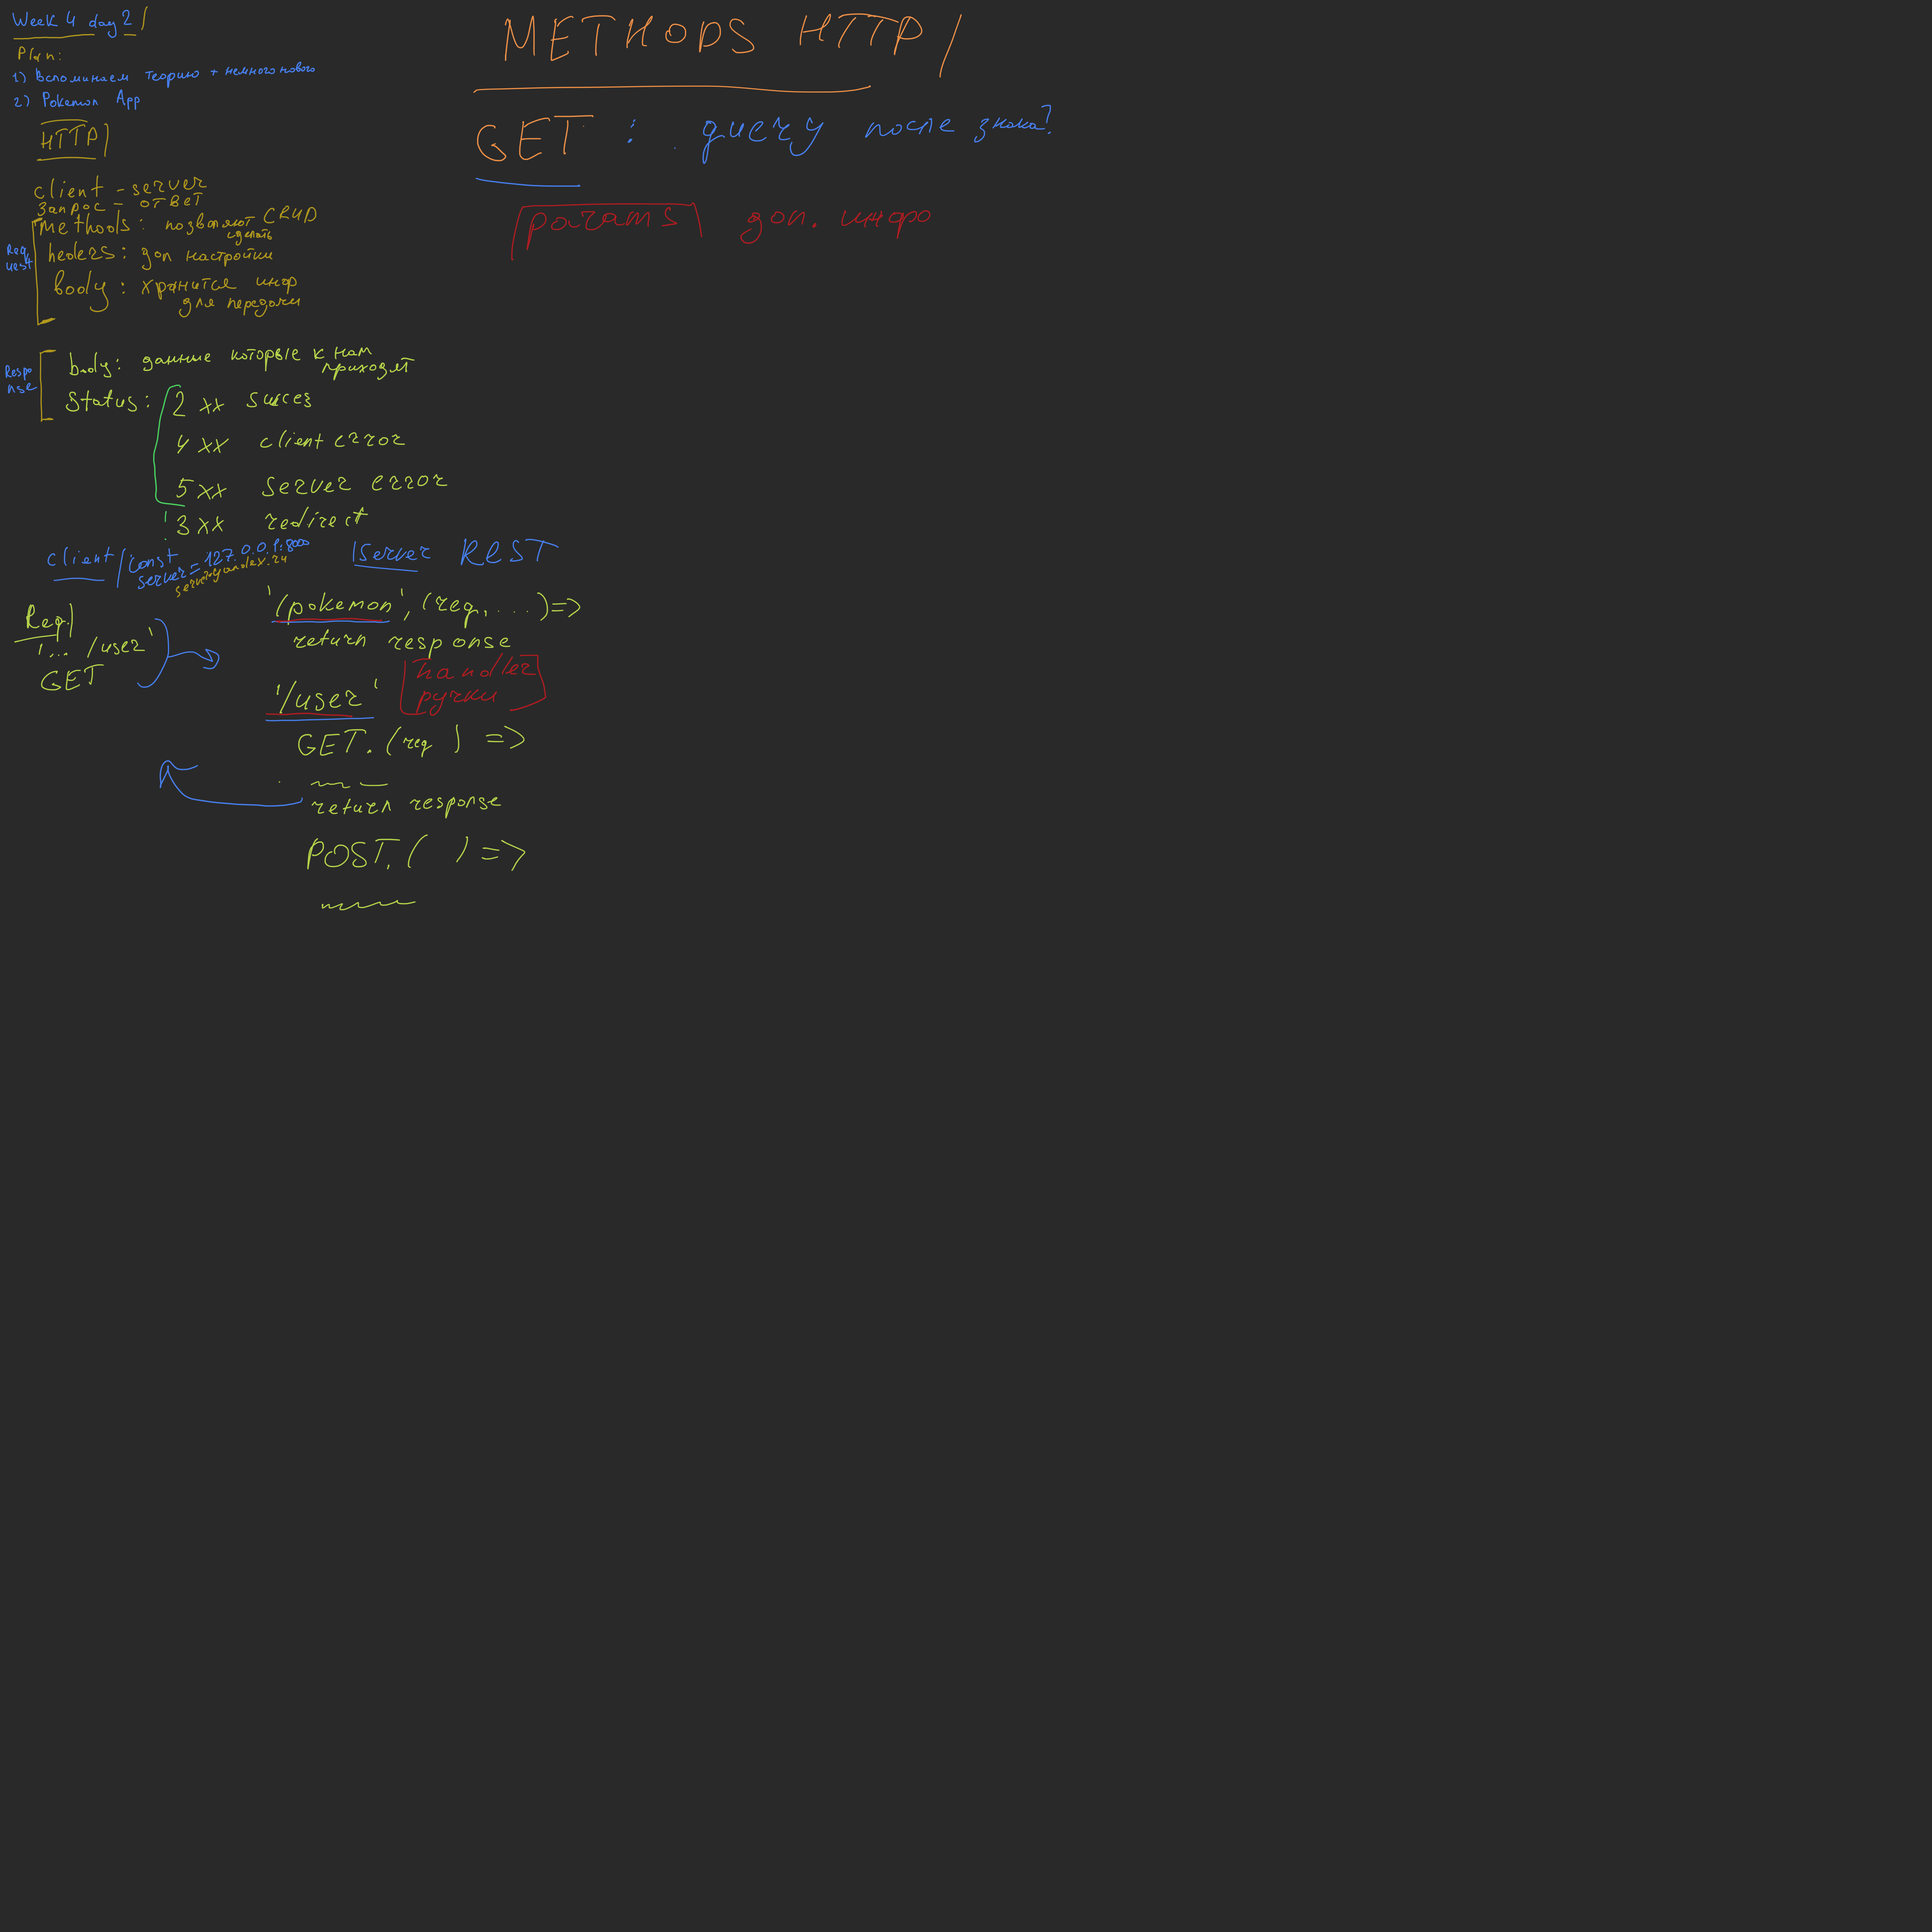 Week 4 day 2
Plan:
1) Вспоминаем теорию + немного нового
2) Pokemon App
HTTP
client - server
запрос - ответ
Request
Methods: позволяют сделать CRUD
heders: доп настройки
body: хранится инф
для передачи
Response
body: данные которые к нам
приходят
Status: 2 xx succes
4 xx client error
5 xx server error
! 3 xx redirect
client / const
server = 127.0.0.1:8000
server=yandex.ru
Server REST
Req.
'... /user'
GET
'/pokemon', (req, ...) =>
return response
handler
ручки
'/user'
GET. (req ) =>
return response
POST. ( ) =>
METHODS HTTP
GET : query после знака ?
params доп. инфо